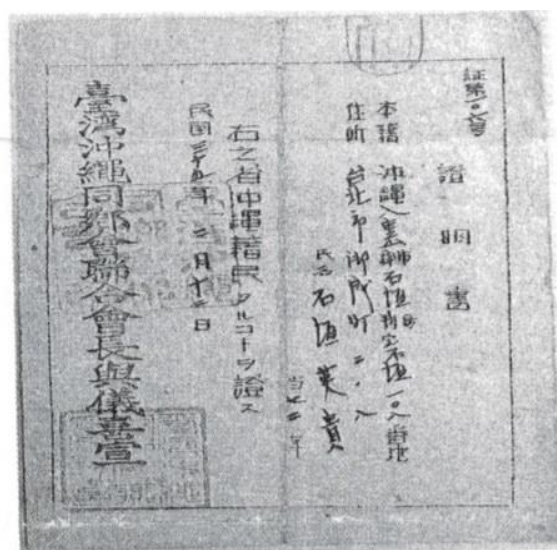 証第一〇六号
證明書
本籍 沖縄八重山郡石垣町字石垣一〇八番地
住所 台北市御成町二ノ八
氏名 石垣英貴
当七二年
右之者沖縄籍民タルコトヲ證ス
民国三十五年二月十二日
臺灣沖繩同鄉會聯合會長與儀喜宣